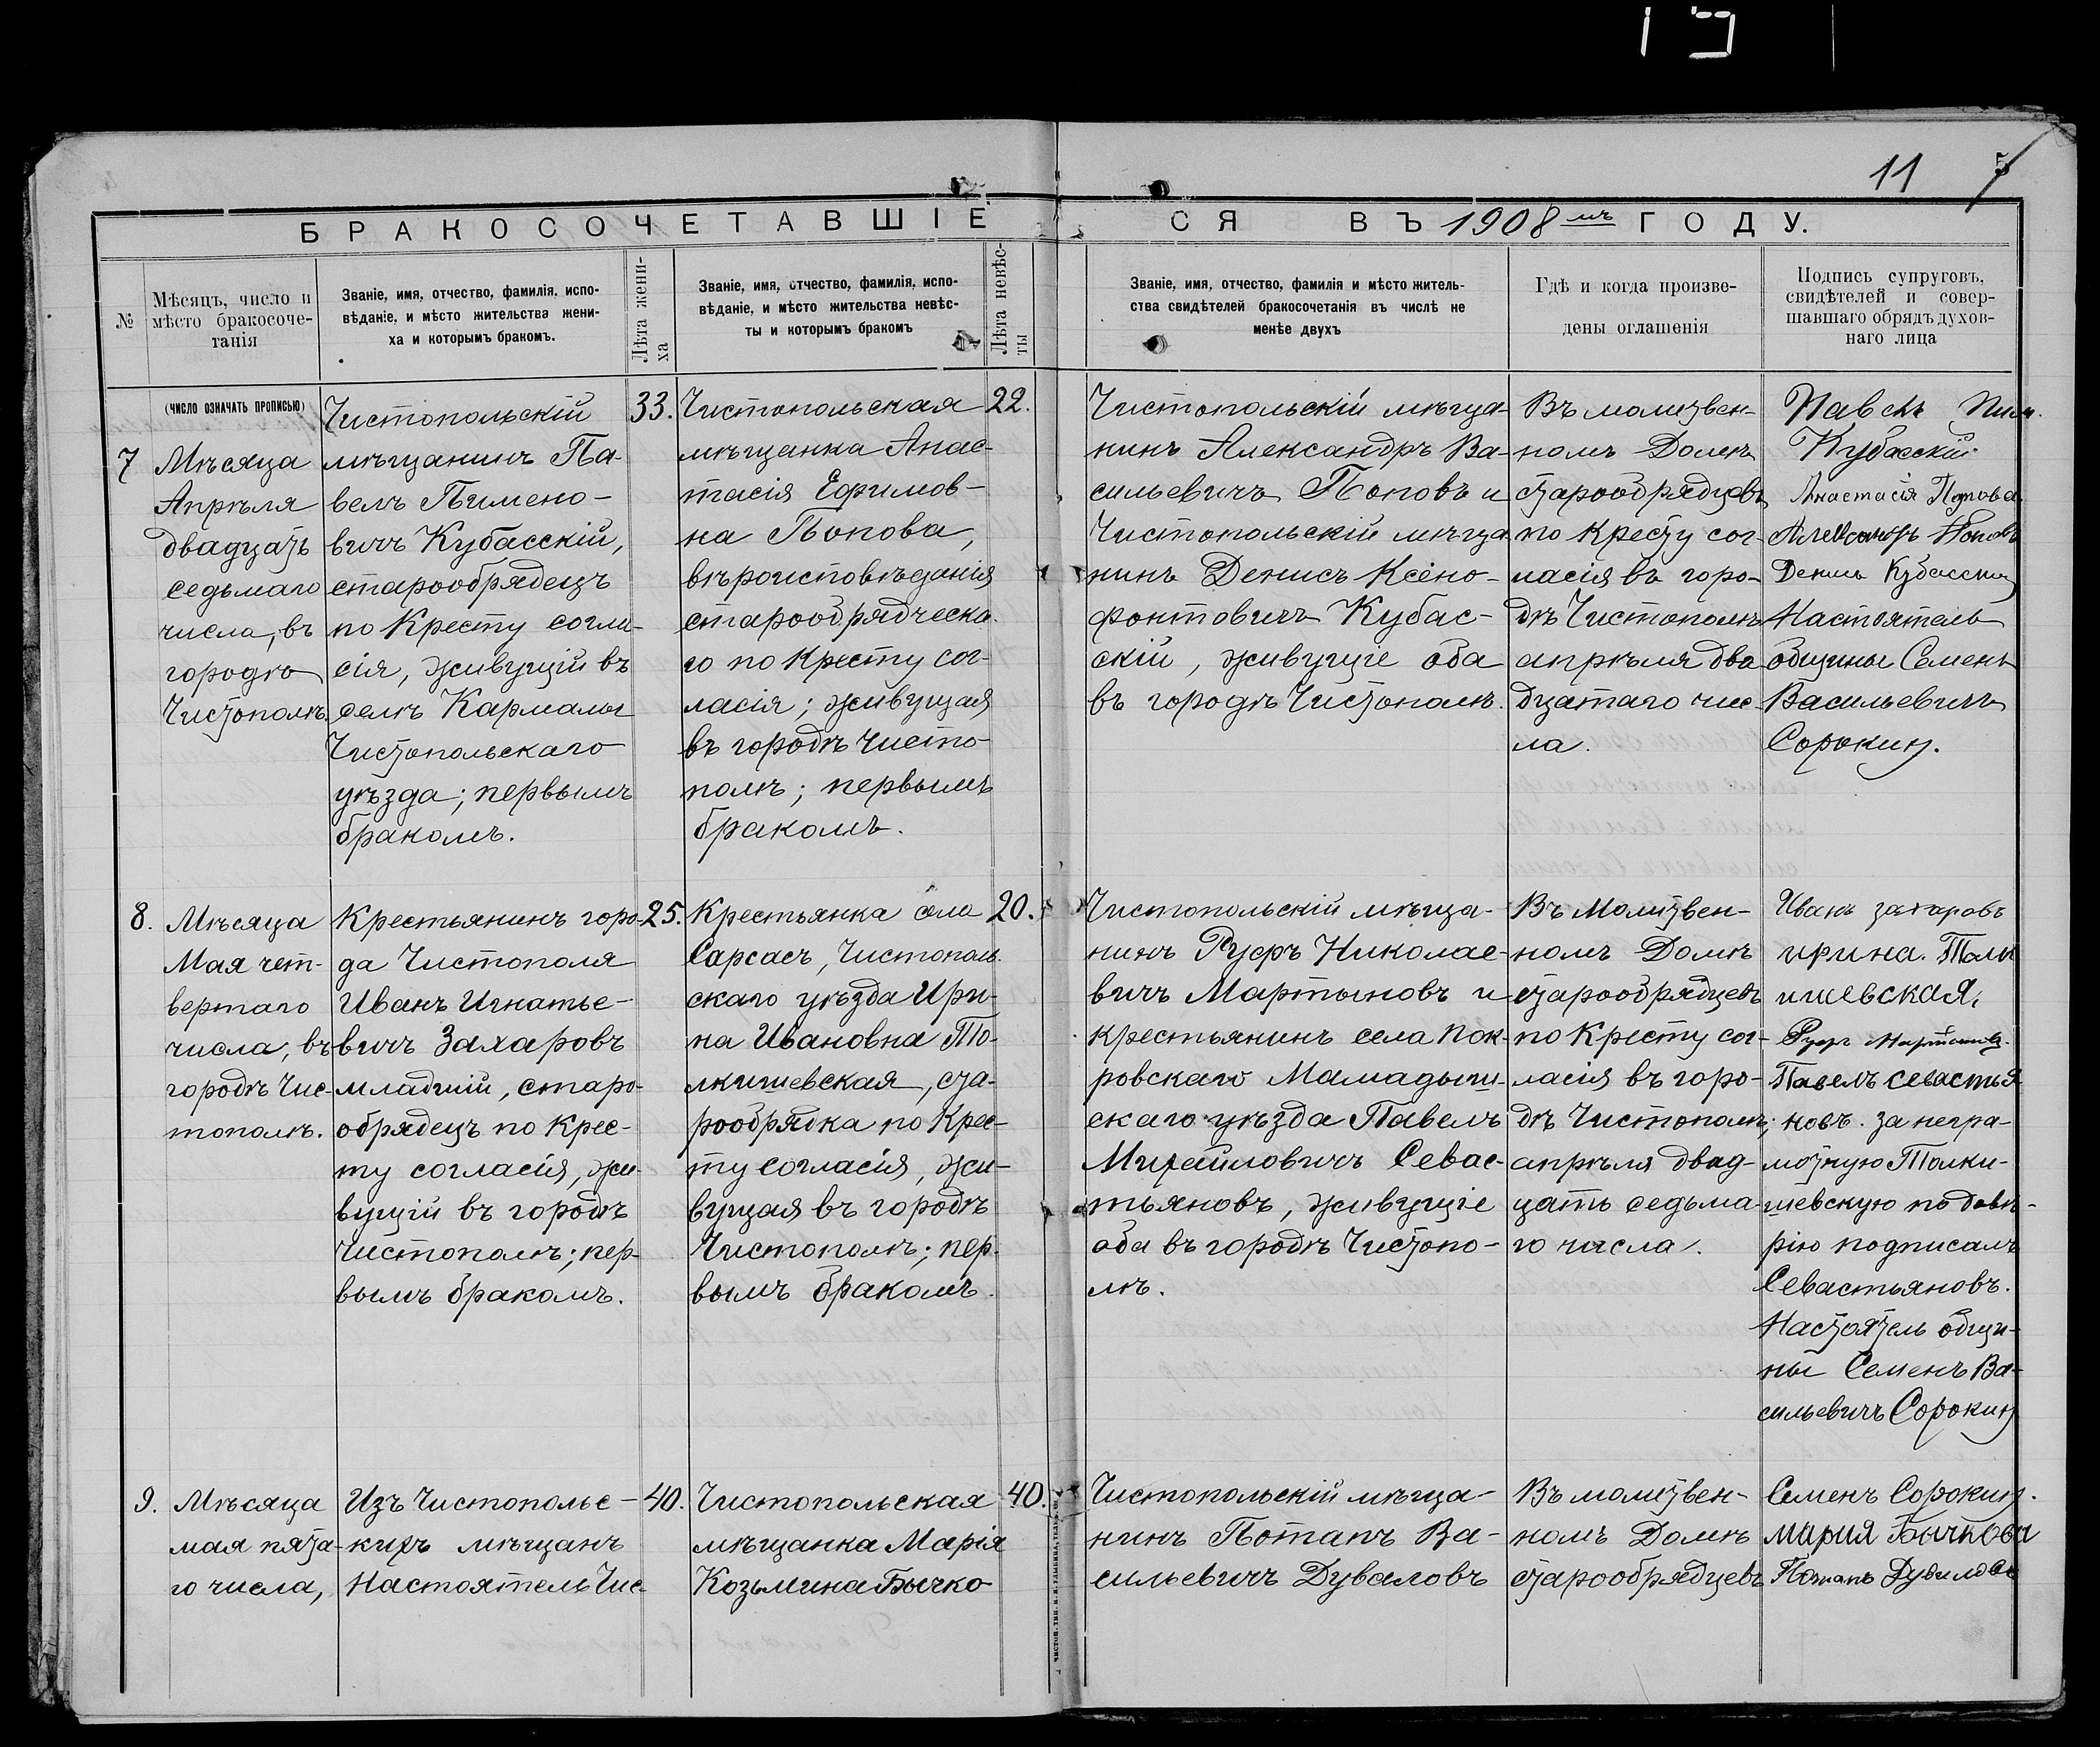 11 5
БРАКОСОЧЕТАВШІЕ СЯ ВЪ 1908мъ ГОДУ.
№
Мѣсяцъ, число и
мѣсто бракосоче-
танія
Званіе, имя, отчество, фамилія, испо-
вѣданіе, и мѣсто жительства жени-
ха и которымъ бракомъ.
Лѣта жени-
ха
Званіе, имя, отчество, фамилія, испо-
вѣданіе, и мѣсто жительства невѣс-
ты и которымъ бракомъ
Лѣта невѣс-
ты
Званіе, имя, отчество, фамилія и мѣсто житель-
ства свидѣтелей бракосочетанія въ числѣ не
менѣе двухъ
Гдѣ и когда произве-
дены оглашенія
Подпись супруговъ,
свидѣтелей и совер-
шавшаго обрядъ духов-
наго лица
(ЧИСЛО ОЗНАЧАТЬ ПРОПИСЬЮ)
7
Мѣсяца
Апрѣля
двадцать
седьмаго
числа, въ
городѣ
Чистополѣ.
Чистопольскій
мѣщанинъ Па-
велъ Пимено-
вичъ Кубасскій,
старообрядецъ
по Кресту согла-
сія, живущій въ
селѣ Кармалы
Чистопольскаго
уѣзда; первымъ
бракомъ.
33.
Чистопольская
мѣщанка Анас-
тасія Ефимов-
на Попова,
вѣроисповѣданія
старообрядческа-
го по Кресту сог-
ласія; живущая
въ городѣ Чисто-
полѣ; первымъ
бракомъ.
22.
Чистопольскій мѣща-
нинъ Александръ Ва-
сильевичъ Поповъ и
Чистопольскій мѣща
нинъ Денисъ Ксено-
фонтовичъ Кубас-
скій, живущіе оба
въ городѣ Чистополѣ.
Въ молитвен-
номъ Домѣ
старообрядцевъ
по Кресту сог-
ласія въ горо-
дѣ Чистополѣ
апрѣля два
дцатаго чис-
ла.
Павелъ Пим.
Кубасскій
Анастасія Попова
Александръ Поповъ
Денисъ Кубасскій
Настоятель
общины Семенъ
Васильевичъ
Сорокин.
8.
Мѣсяца
Мая чет-
вертаго
числа, въ
городѣ Чис-
тополѣ.
Крестьянинъ горо-
да Чистополя
Иванъ Игнатье-
вичъ Захаровъ
младшій, старо-
обрядецъ по Крес-
ту согласія, жи-
вущій въ городѣ
Чистополѣ; пер-
вымъ бракомъ.
25.
Крестьянка села
Сарсасъ, Чистополь-
скаго уѣзда Ири-
на Ивановна То-
лкишевская, ста-
рообрядка по Крес-
ту согласія, жи-
вущая въ городѣ
Чистополѣ; пер-
вымъ бракомъ.
20.
Чистопольскій мѣща-
нинъ Руфъ Николае-
вичъ Мартыновъ и
крестьянинъ села Пок-
ровскаго Мамадыш-
скаго уѣзда Павелъ
Михайловичъ Севас-
тьяновъ, живущіе
оба въ городѣ Чистопо-
лѣ.
Въ Молитвен-
номъ Домѣ
старообрядцевъ
по Кресту сог-
ласія въ горо-
дѣ Чистополѣ;
апрѣля двад-
цать седьма-
го числа.
Иванъ захаровъ
ирина. Толк
ишевская,
Руфъ Мартыновъ.
Павелъ севастья
новъ. за негра-
мотную Толки-
шевскую по довѣ-
рію подписалъ
Севастьяновъ.
Настоятель общи-
ны Семенъ Ва-
сильевичъ Сорокин
9.
Мѣсяца
мая пята-
го числа,
Изъ Чистопольс-
кихъ мѣщанъ
Настоятель Чис-
40.
Чистопольская
мѣщанка Марія
Козьмина Бычко-
40.
Чистопольскій мѣща-
нинъ Потапъ Ва-
сильевичъ Дуваловъ
Въ молитвен-
номъ Домѣ
старообрядцевъ
Семенъ Сорокин.
мария Бычкова
Потапъ Дуваловъ